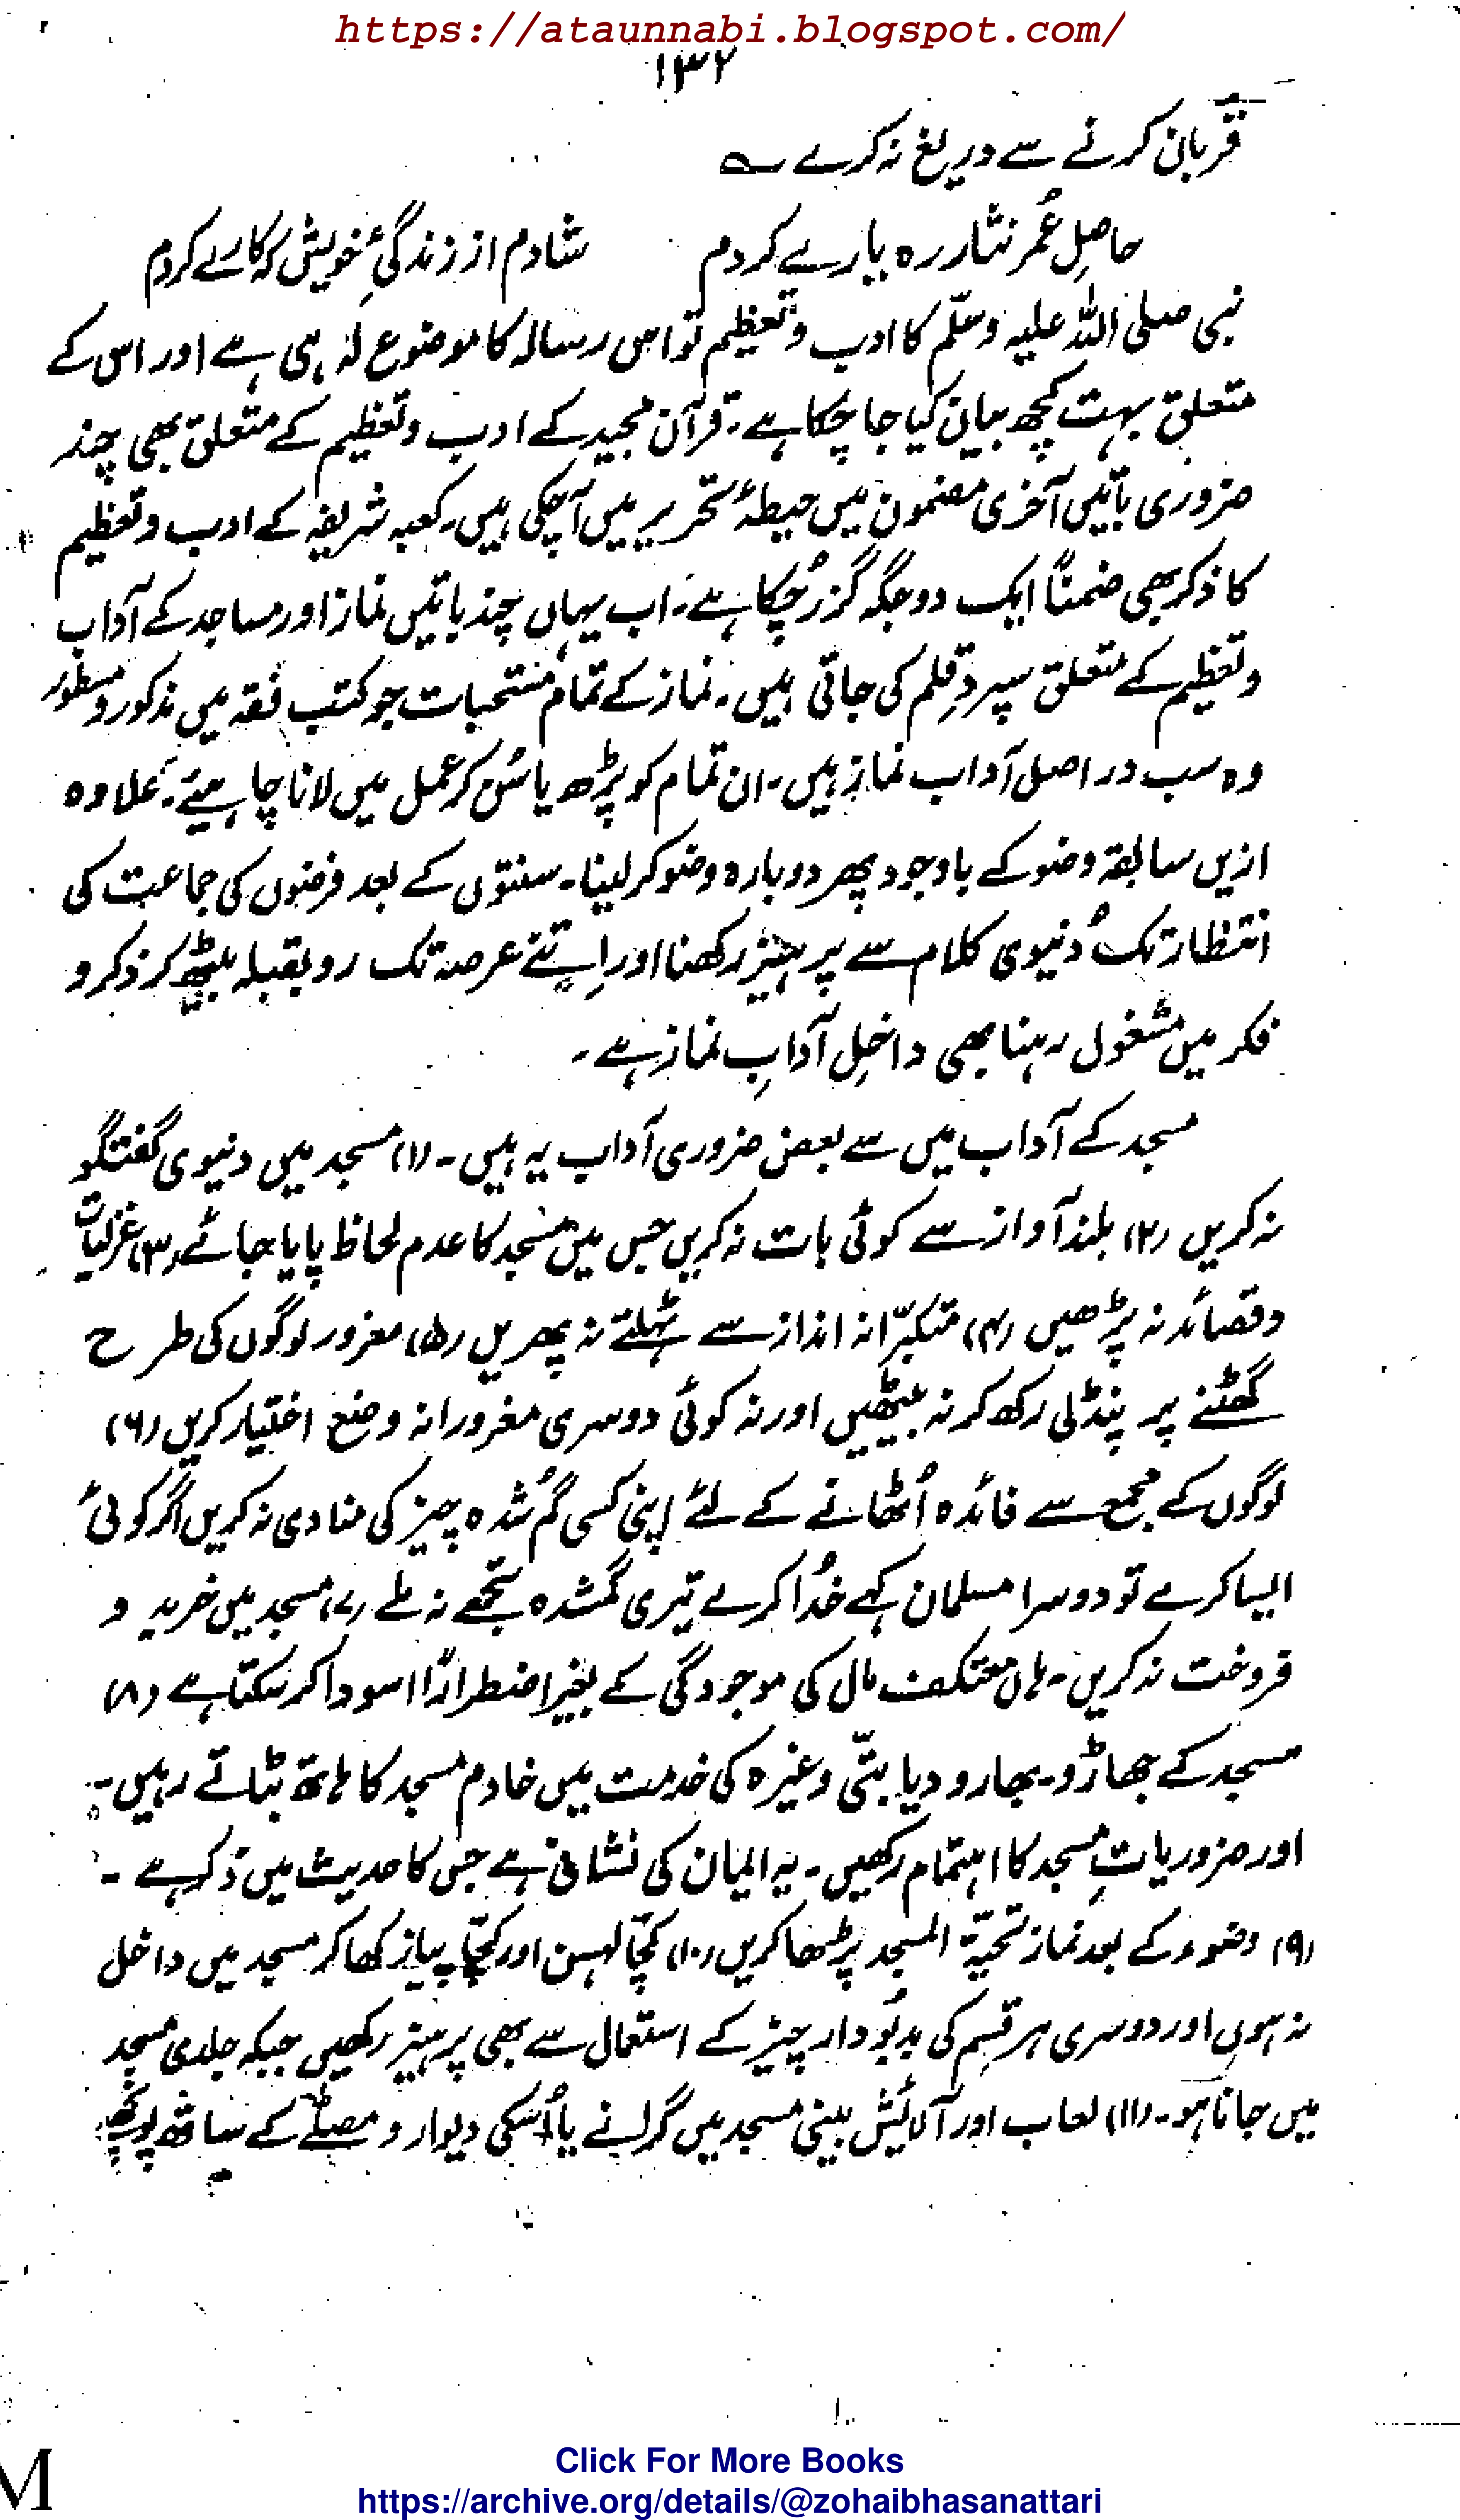 https://ataunnabi.blogspot.com/
۱۳۲
قربان کرنے سے دریغ نہ کرے ؎
حاصلِ عُمر نثارِ رہ یارے کردم شادم از زندگیٔ خویش کہ کارے کردم
نبی صلی اللہ علیہ وسلّم کا ادب وتعظیم تو اس رسالہ کا موضوع لہٗ ہی ہے اور اس کے
متعلق بہت کچھ بیان کیا جا چکا ہے۔ قرآن مجید کے ادب وتعظیم کے متعلق بھی چند
ضروری باتیں آخری مضمون میں حیطۂ تحریر میں آچکی ہیں۔ کعبہ شریفہ کے ادب وتعظیم
کا ذکر بھی ضمناً ایک دو جگہ گزر چُکا ہے۔ اب یہاں چند باتیں نماز اور مساجد کے آداب
وتعظیم کے متعلق سپردِ قلم کی جاتی ہیں۔ نماز کے تمام مُستحبات جو کتب فقہ میں مذکور و مسطور
وہ سب در اصل آداب نماز ہیں۔ ان تمام کو پڑھ یا سُن کر عمل میں لانا چاہیئے۔ علاوہ
ازیں سابقہ وضو کے باوجود پھر دوبارہ وضو کر لینا۔ سنتوں کے بعد فرضوں کی جماعت کی
انتظار تک دُنیوی کلام سے پرہیز رکھنا اور اِتنے عرصہ تک رو بقبلہ بیٹھ کر ذکر و
فکر میں مشغول رہنا بھی داخلِ آدابِ نماز ہے۔
مسجد کے آداب میں سے بعض ضروری آداب یہ ہیں۔ (۱) مسجد میں دنیوی گفتگو
نہ کریں (۲) بلند آواز سے کوئی بات نہ کریں جس میں مسجد کا عدم لحاظ پایا جائے (۳) غزلیات
و قصائد نہ پڑھیں (۴) متکبّرانہ انداز سے ٹہلتے نہ پھریں (۵) مغرور لوگوں کی طرح
گھٹنے پر پنڈلی رکھ کر نہ بیٹھیں اور نہ کوئی دوسری مغرورانہ وضع اختیار کریں (۶)
لوگوں کے مجمع سے فائدہ اُٹھانے کے لئے اپنی کسی گُم شدہ چیز کی منادی نہ کریں اگر کوئی
ایسا کرے تو دوسرا مسلمان کہے خُدا کرے تیری گمشدہ تجھے نہ ملے (۷) مسجد میں خرید و
فروخت نہ کریں۔ ہاں معتکف مال کی موجودگی کے بغیر اضطراراً سودا کر سکتا ہے (۸)
مسجد کے جھاڑو۔ بھارو دیا بتّی وغیرہ کی خدمت میں خادم مسجد کا ہاتھ بٹاتے رہیں۔
اور ضروریاتِ مسجد کا اہتمام رکھیں۔ یہ ایمان کی نشانی ہے جس کا حدیث میں ذکر ہے۔
(۹) وضوء کے بعد نماز تحیّۃ المسجد پڑھا کریں (۱۰) کچّا لہسن اور کچّا پیاز کھا کر مسجد میں داخل
نہ ہوں اور دوسری ہر قسم کی بدبُو دار چیز کے استعمال سے بھی پرہیز رکھیں جبکہ جلدی مسجد
میں جانا ہو۔ (۱۱) لعاب اور آلائش بینی مسجد میں گرانے یا اُسکی دیوار و مصلّے کے ساتھ پونچھنے
Click For More Books
https://archive.org/details/@zohaibhasanattari